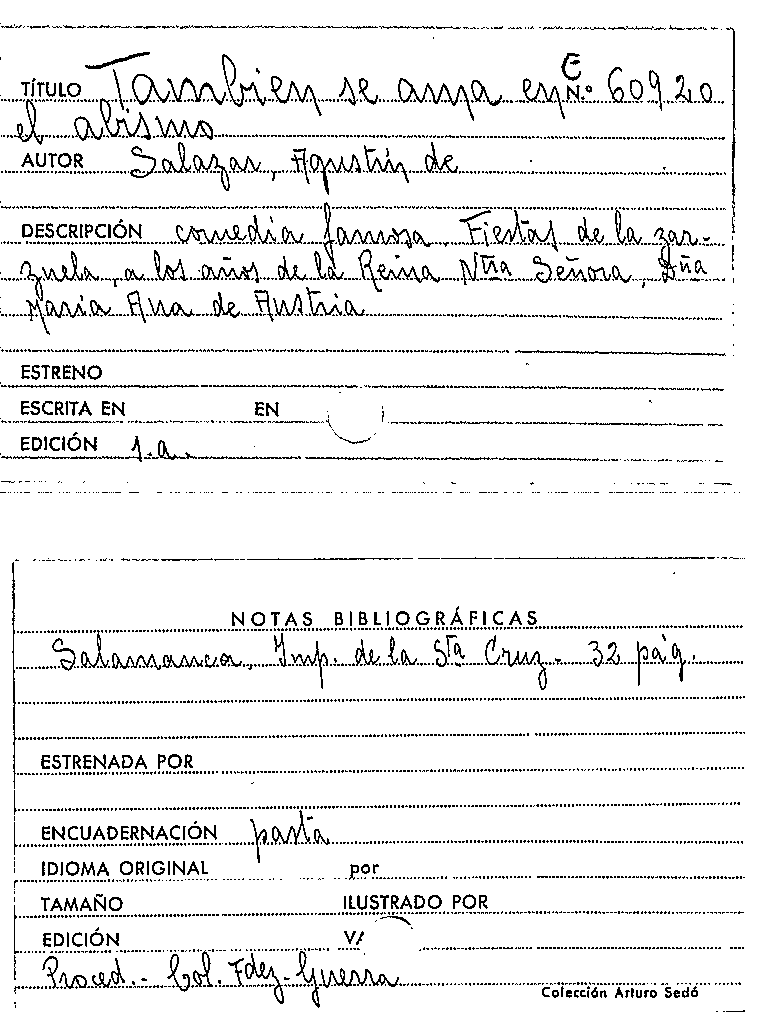 TÍTULO Tambien se ama en C N.º 60920
el abismo
AUTOR Salazar, Agustín de
DESCRIPCIÓN comedia famosa. Fiestas de la zar-
zuela, a los años de la Reina Ntra Señora, Dña
María Ana de Austria
ESTRENO
ESCRITA EN EN
EDICIÓN s.a.
NOTAS BIBLIOGRÁFICAS
Salamanca, Imp. de la Sta Cruz - 32 pág.
ESTRENADA POR
ENCUADERNACIÓN pasta
IDIOMA ORIGINAL por
TAMAÑO ILUSTRADO POR
EDICIÓN V/
Proced.- Col. Fdez-Guerra
Colección Arturo Sedó